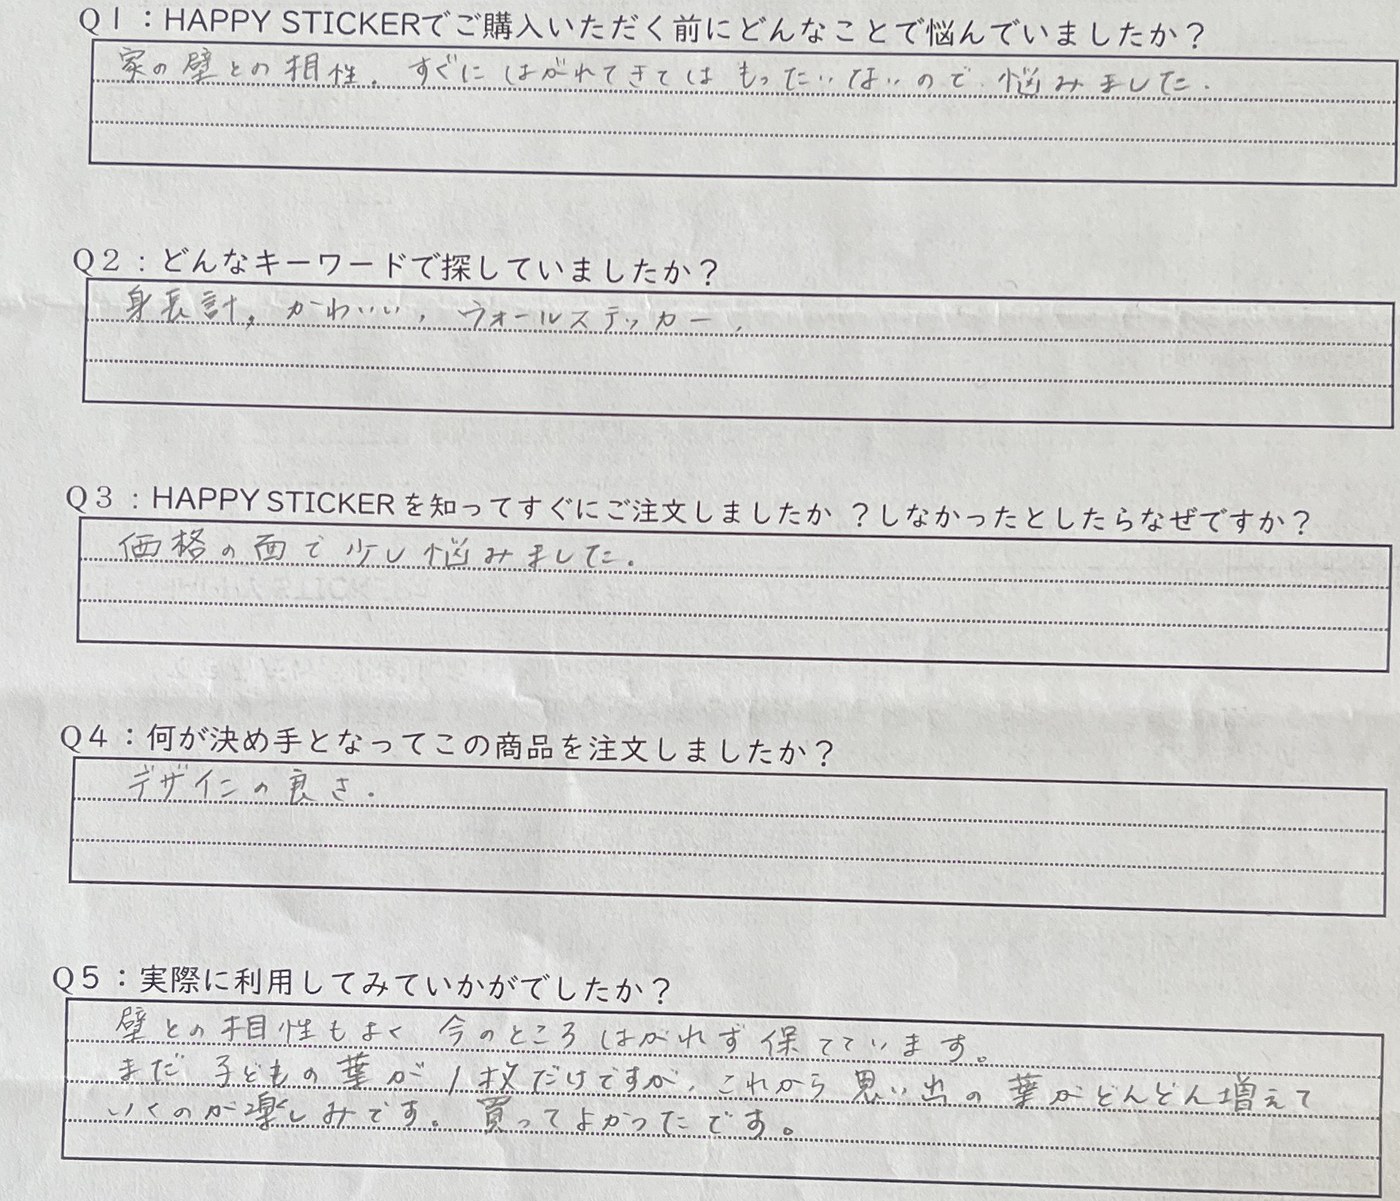 Q1：HAPPY STICKERでご購入いただく前にどんなことで悩んでいましたか？
家の壁との相性。すぐにはがれてきてはもったいないので悩みました.
Q2：どんなキーワードで探していましたか？
身長計, かわいい, ウォールステッカー,
Q3：HAPPY STICKERを知ってすぐにご注文しましたか？しなかったとしたらなぜですか？
価格の面で少し悩みました.
Q4：何が決め手となってこの商品を注文しましたか？
デザインの良さ.
Q5：実際に利用してみていかがでしたか？
壁との相性もよく 今のところはがれず保てています。
まだ 子どもの葉が1枚だけですが、これから思い出の葉がどんどん増えて
いくのが楽しみです。買ってよかったです。